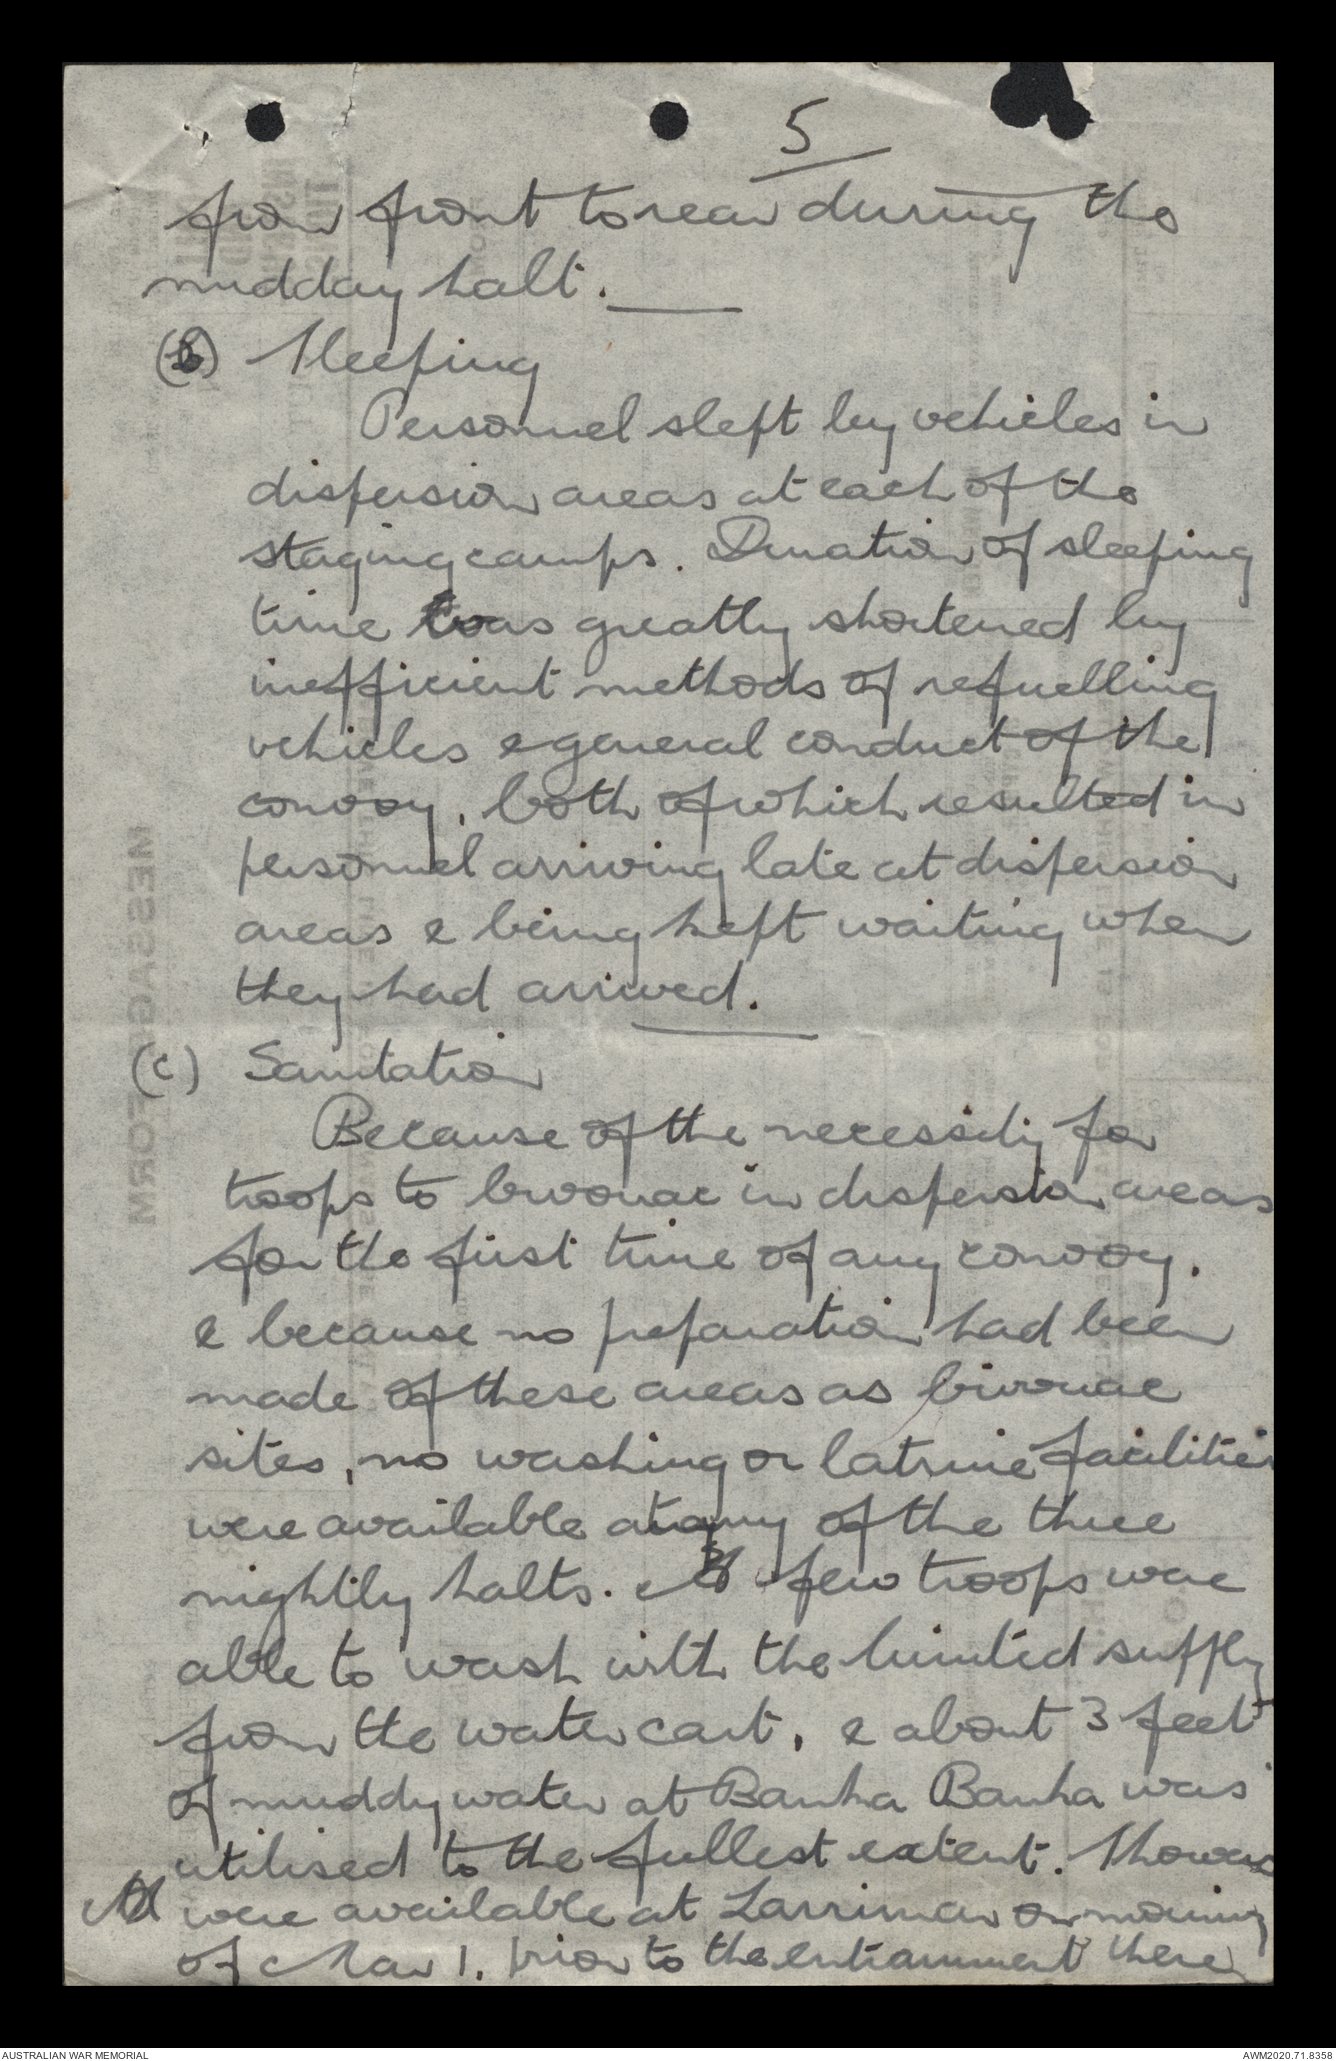 5
from front to rear during the
midday halt.
(b) Sleeping
Personnel slept by vehicles in
dispersion areas at each of the
staging camps. Duration of sleeping
time was greatly shortened by
inefficient methods of refuelling
vehicles & general conduct of the
convoy, both of which resulted in
personnel arriving late at dispersion
areas & being kept waiting when
they had arrived.
(c) Sanitation
Because of the necessity for
troops to bivouac in dispersion areas
for the first time of any convoy,
& because no preparation had been
made of these areas as bivouac
sites, no washing or latrine facilities
were available at any of the three
nightly halts. A few troops were
able to wash with the limited supply
from the water cart, & about 3 feet
of muddy water at Banka Banka was
utilised to the fullest extent. Showers
were available at Larrimar on morning
of Mar 1, prior to the entrainment there
MESSAGE FORM
AUSTRALIAN WAR MEMORIAL
AWM2020.71.8358